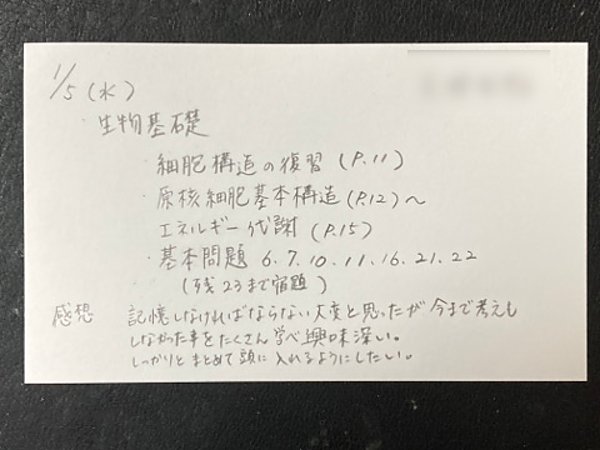 1/5(水)
・生物基礎
・細胞構造の復習(P.11)
・原核細胞基本構造(P.12)〜
エネルギー代謝(P.15)
・基本問題 6.7.10.11.16.21.22
(残23まで宿題)
感想 記憶しなければならない大変と思ったが今まで考えも
しなかった事をたくさん学べ興味深い。
しっかりとまとめて頭に入れるようにしたい。